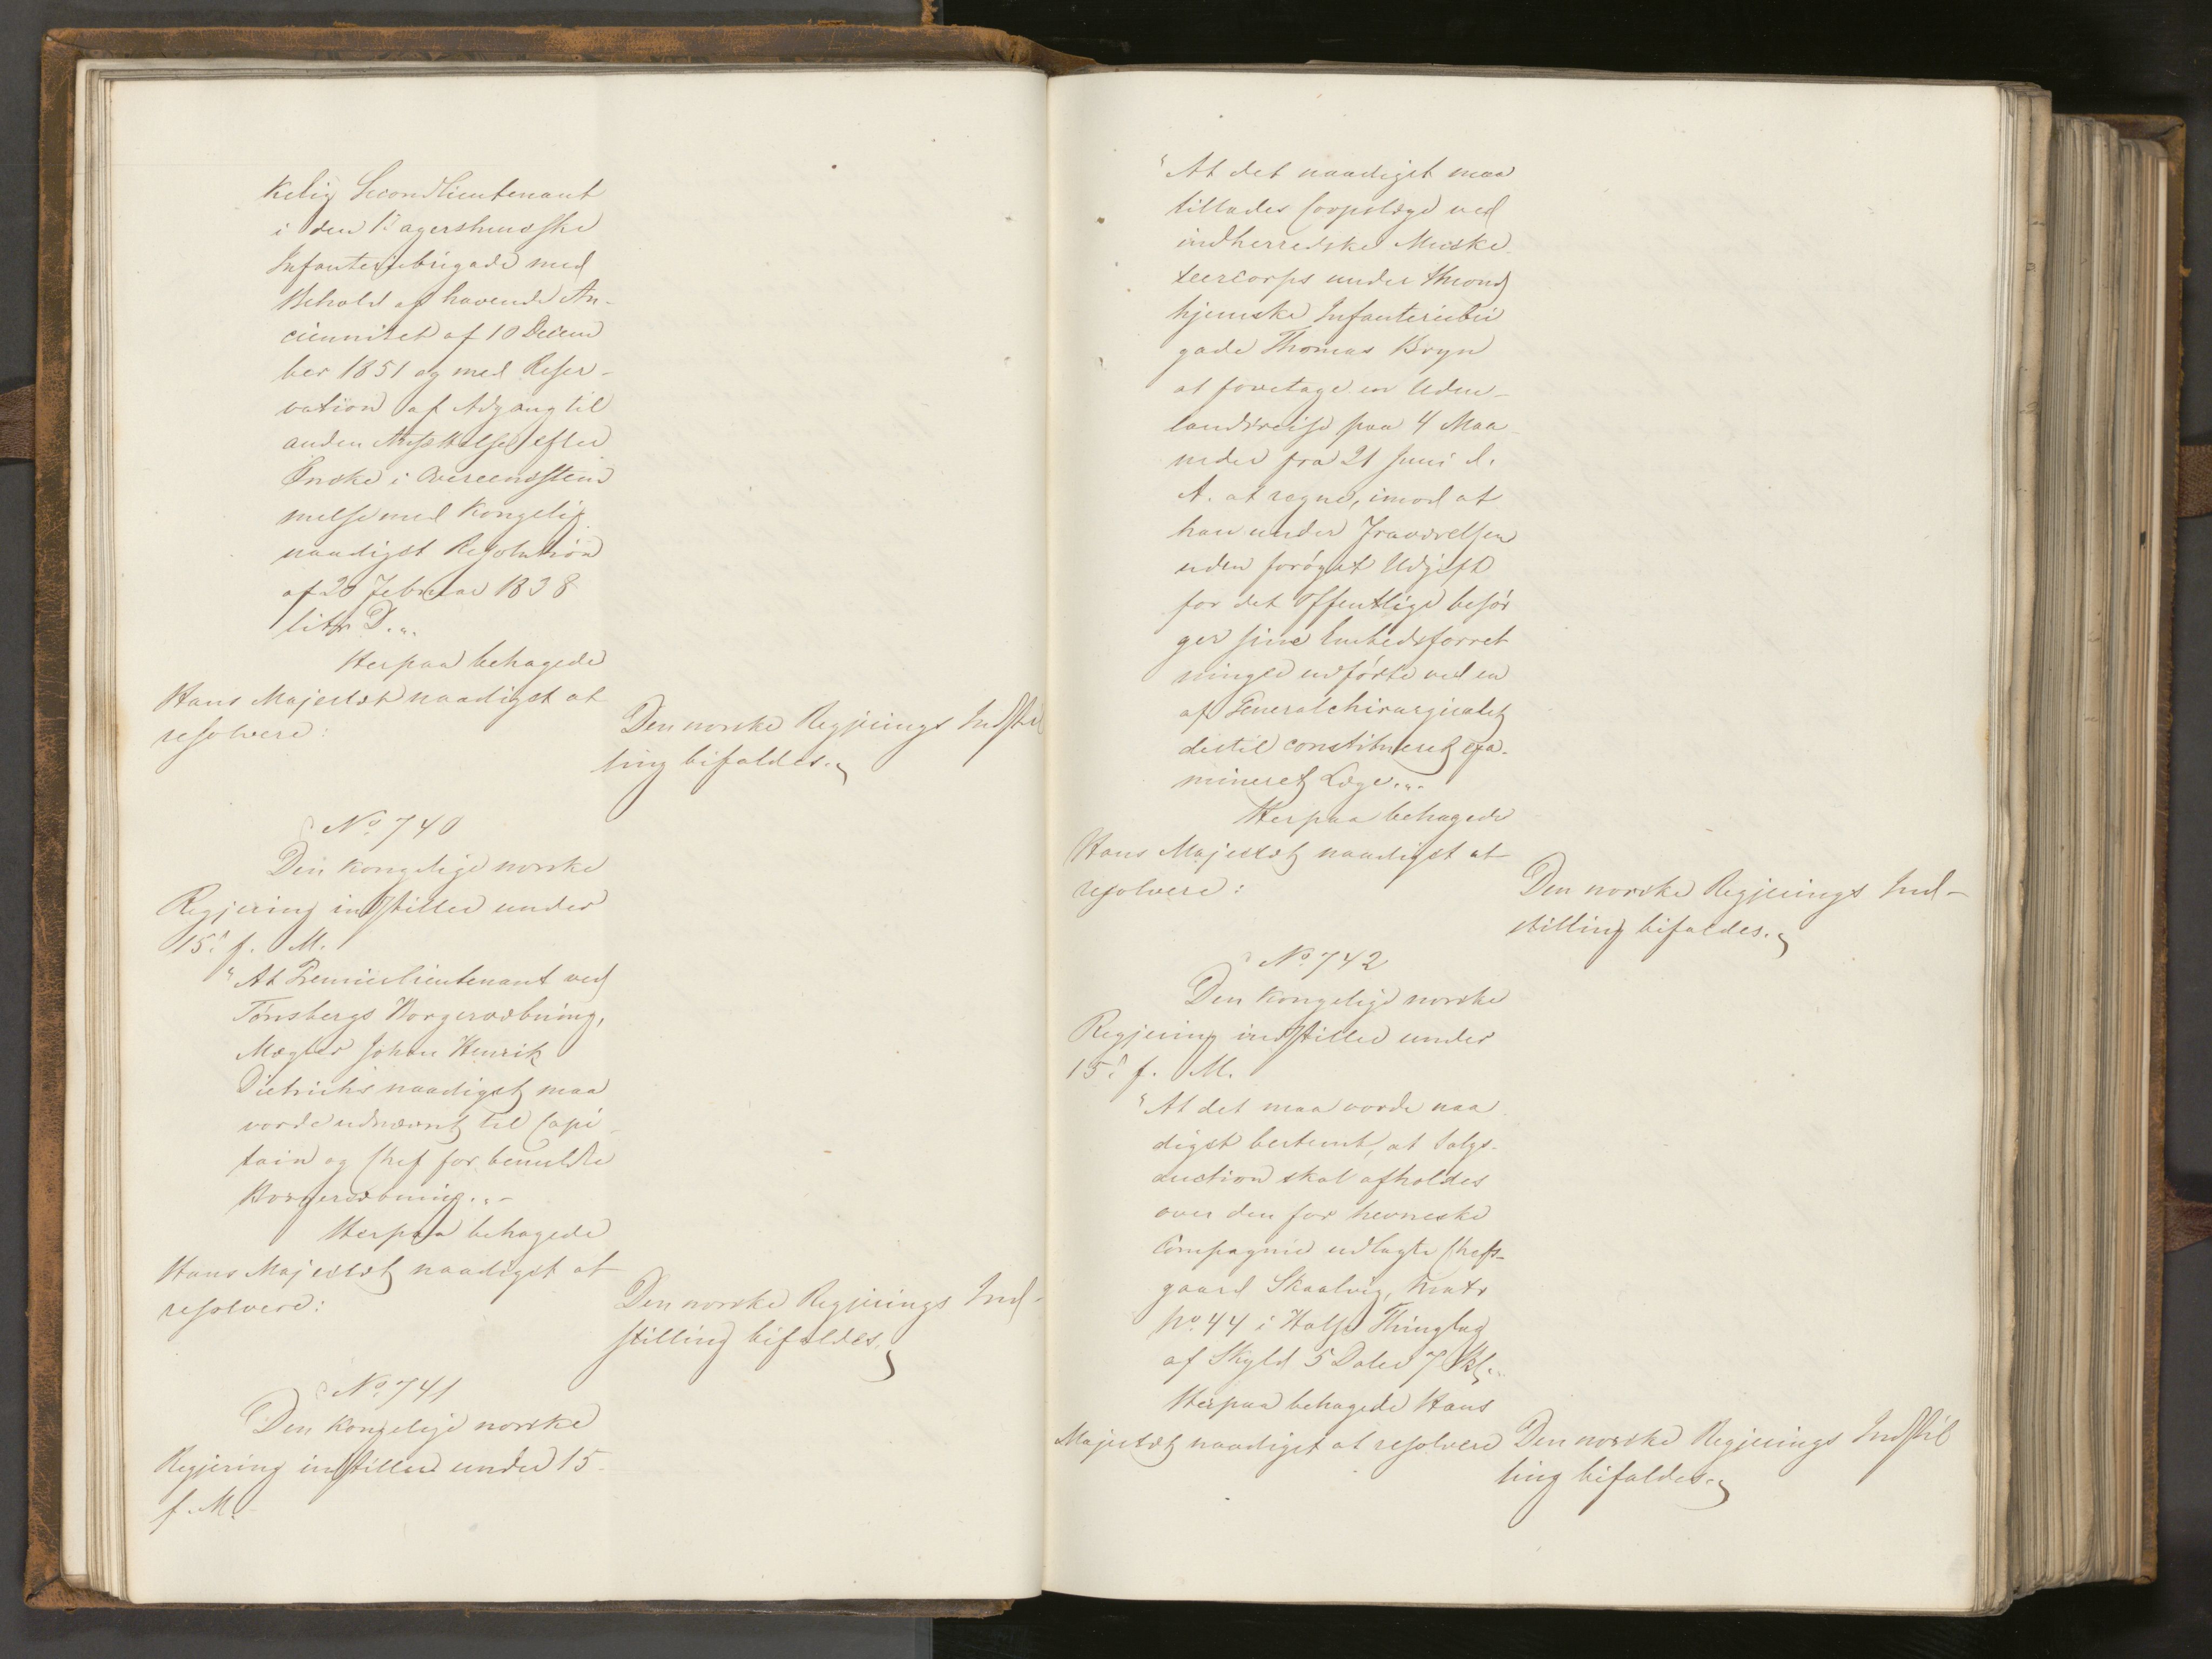 kelig Secondlieutenant
i den 1ste agershuusske
Infanteriebrigade med
Behold af havende An-
ciennitet af 10 Decem
ber 1851 og med Reser-
vation af Adgang til
anden Ansættelse efter
Ønske i Overeensstem
melse med Kongelig
naadigst Resolution
af 20 Februar 1838
litr D.„.
Herpaa behagede
Hans Majestæt naadigst at
resolvere:
Den norske Regjerings Indstil
ling bifaldes.
No 740
Den kongelige norske
Regjering indstiller under
15de f. M.
"At Premierlieutenant ved
Tønsbergs Borgervæbning,
Mægler Johan Henrik
Dietrichs naadigst maa
vorde udnævnt til Capi-
tain og Chef for bemeldte
Borgervæbning.„-
Herpaa behagede
Hans Majestæt naadigst at
resolvere:
Den norske Regjerings Ind-
stilling bifaldes.
No 741
Den kongelige norske
Regjering indstiller under 15
f. M.
"At det naadigst maa
tillades Corpslæge ved
indherredske Muske
teercorps under thrond
hjemske Infanteriebri
gade Thomas Bryn
at foretage en Uden-
landsreise paa 4 Maa
neder fra 21 Juni d.
A. at regne, imod at
han under Fraværelsen
uden forøget Udgift
for det Offentlige besør
ger sine Embedsforret
ninger udførte ved en
af Generalchirurgiatet
dertil constitueret exa-
mineret Læge.„.
Herpaa behagede
Hans Majestæt naadigst at
resolvere:
Den norske Regjerings Ind-
stilling bifaldes.
No 742
Den kongelige norske
Regjering indstiller under
15de f. M.
"At det maa vorde naa
digst bestemt, at Salgs-
auction skal afholdes
over den for hevneske
Compagnie udlagte Chefs-
gaard Skaalvig, Matr
No 44 i Halse Thinglag
af Skyld 5 Daler 7 Skl.„.
Herpaa behagede Hans
Majestæt naadigst at resolvere
Den norske Regjerings Indstil
ling bifaldes.